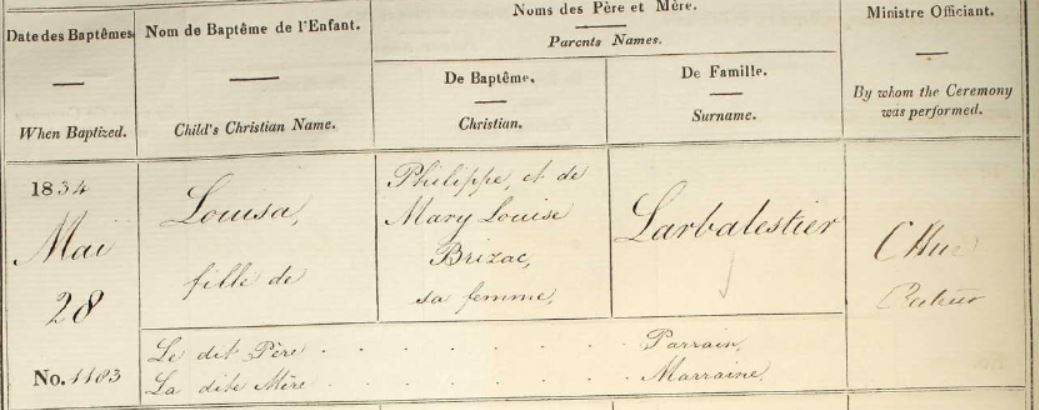 Date des Baptêmes
When Baptized.
Nom de Baptême de l'Enfant.
Child's Christian Name.
Noms des Père et Mère.
Parents Names.
De Baptême.
Christian.
De Famille.
Surname.
Ministre Officiant.
By whom the Ceremony
was performed.
1834
Mai
28
No. 1183
Louisa,
fille de
Philippe, et de
Mary Louise
Brizac,
sa femme,
Larbalestier
Recteur
Le dit Père . . . . . . . Parrain,
La dite Mère . . . . . . . Marraine.